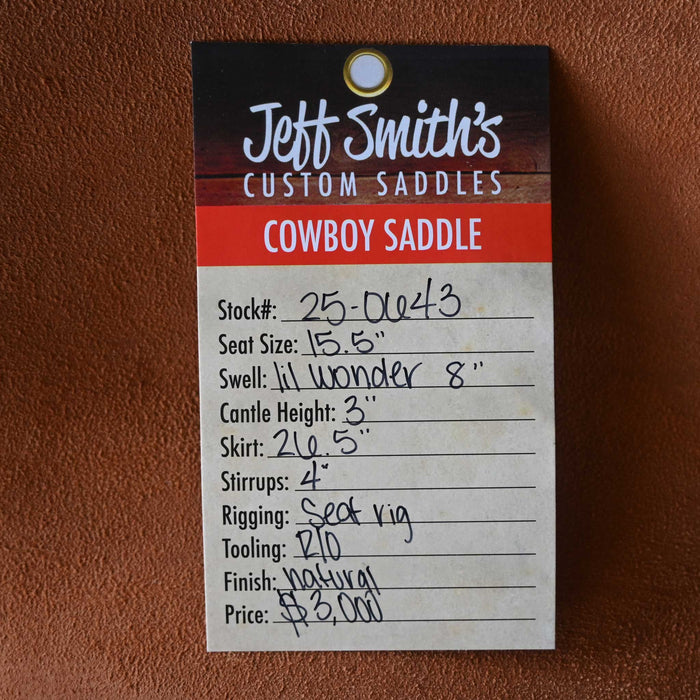 Jeff Smith's
CUSTOM SADDLES
COWBOY SADDLE
Stock#: 25-0643
Seat Size: 15.5"
Swell: lil wonder 8"
Cantle Height: 3"
Skirt: 26.5"
Stirrups: 4"
Rigging: Seat rig
Tooling: R/O
Finish: natural
Price: $3,000